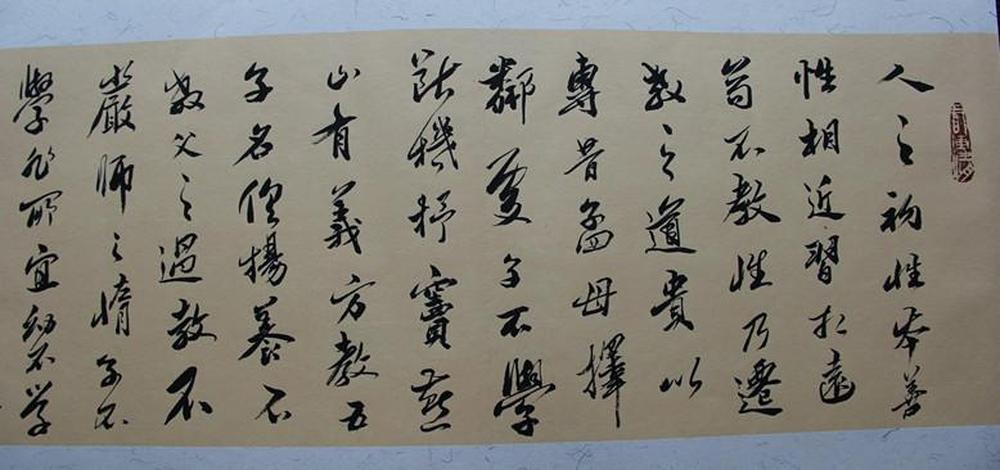 人之初性本善
性相近習相遠
苟不教性乃遷
教之道貴以
專昔孟母擇
鄰處子不學
斷機杼竇燕
山有義方教五
子名俱揚養不
教父之過教不
嚴師之惰子不
學非所宜幼不学